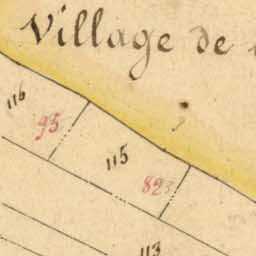 Village de
116
95
115
823
113